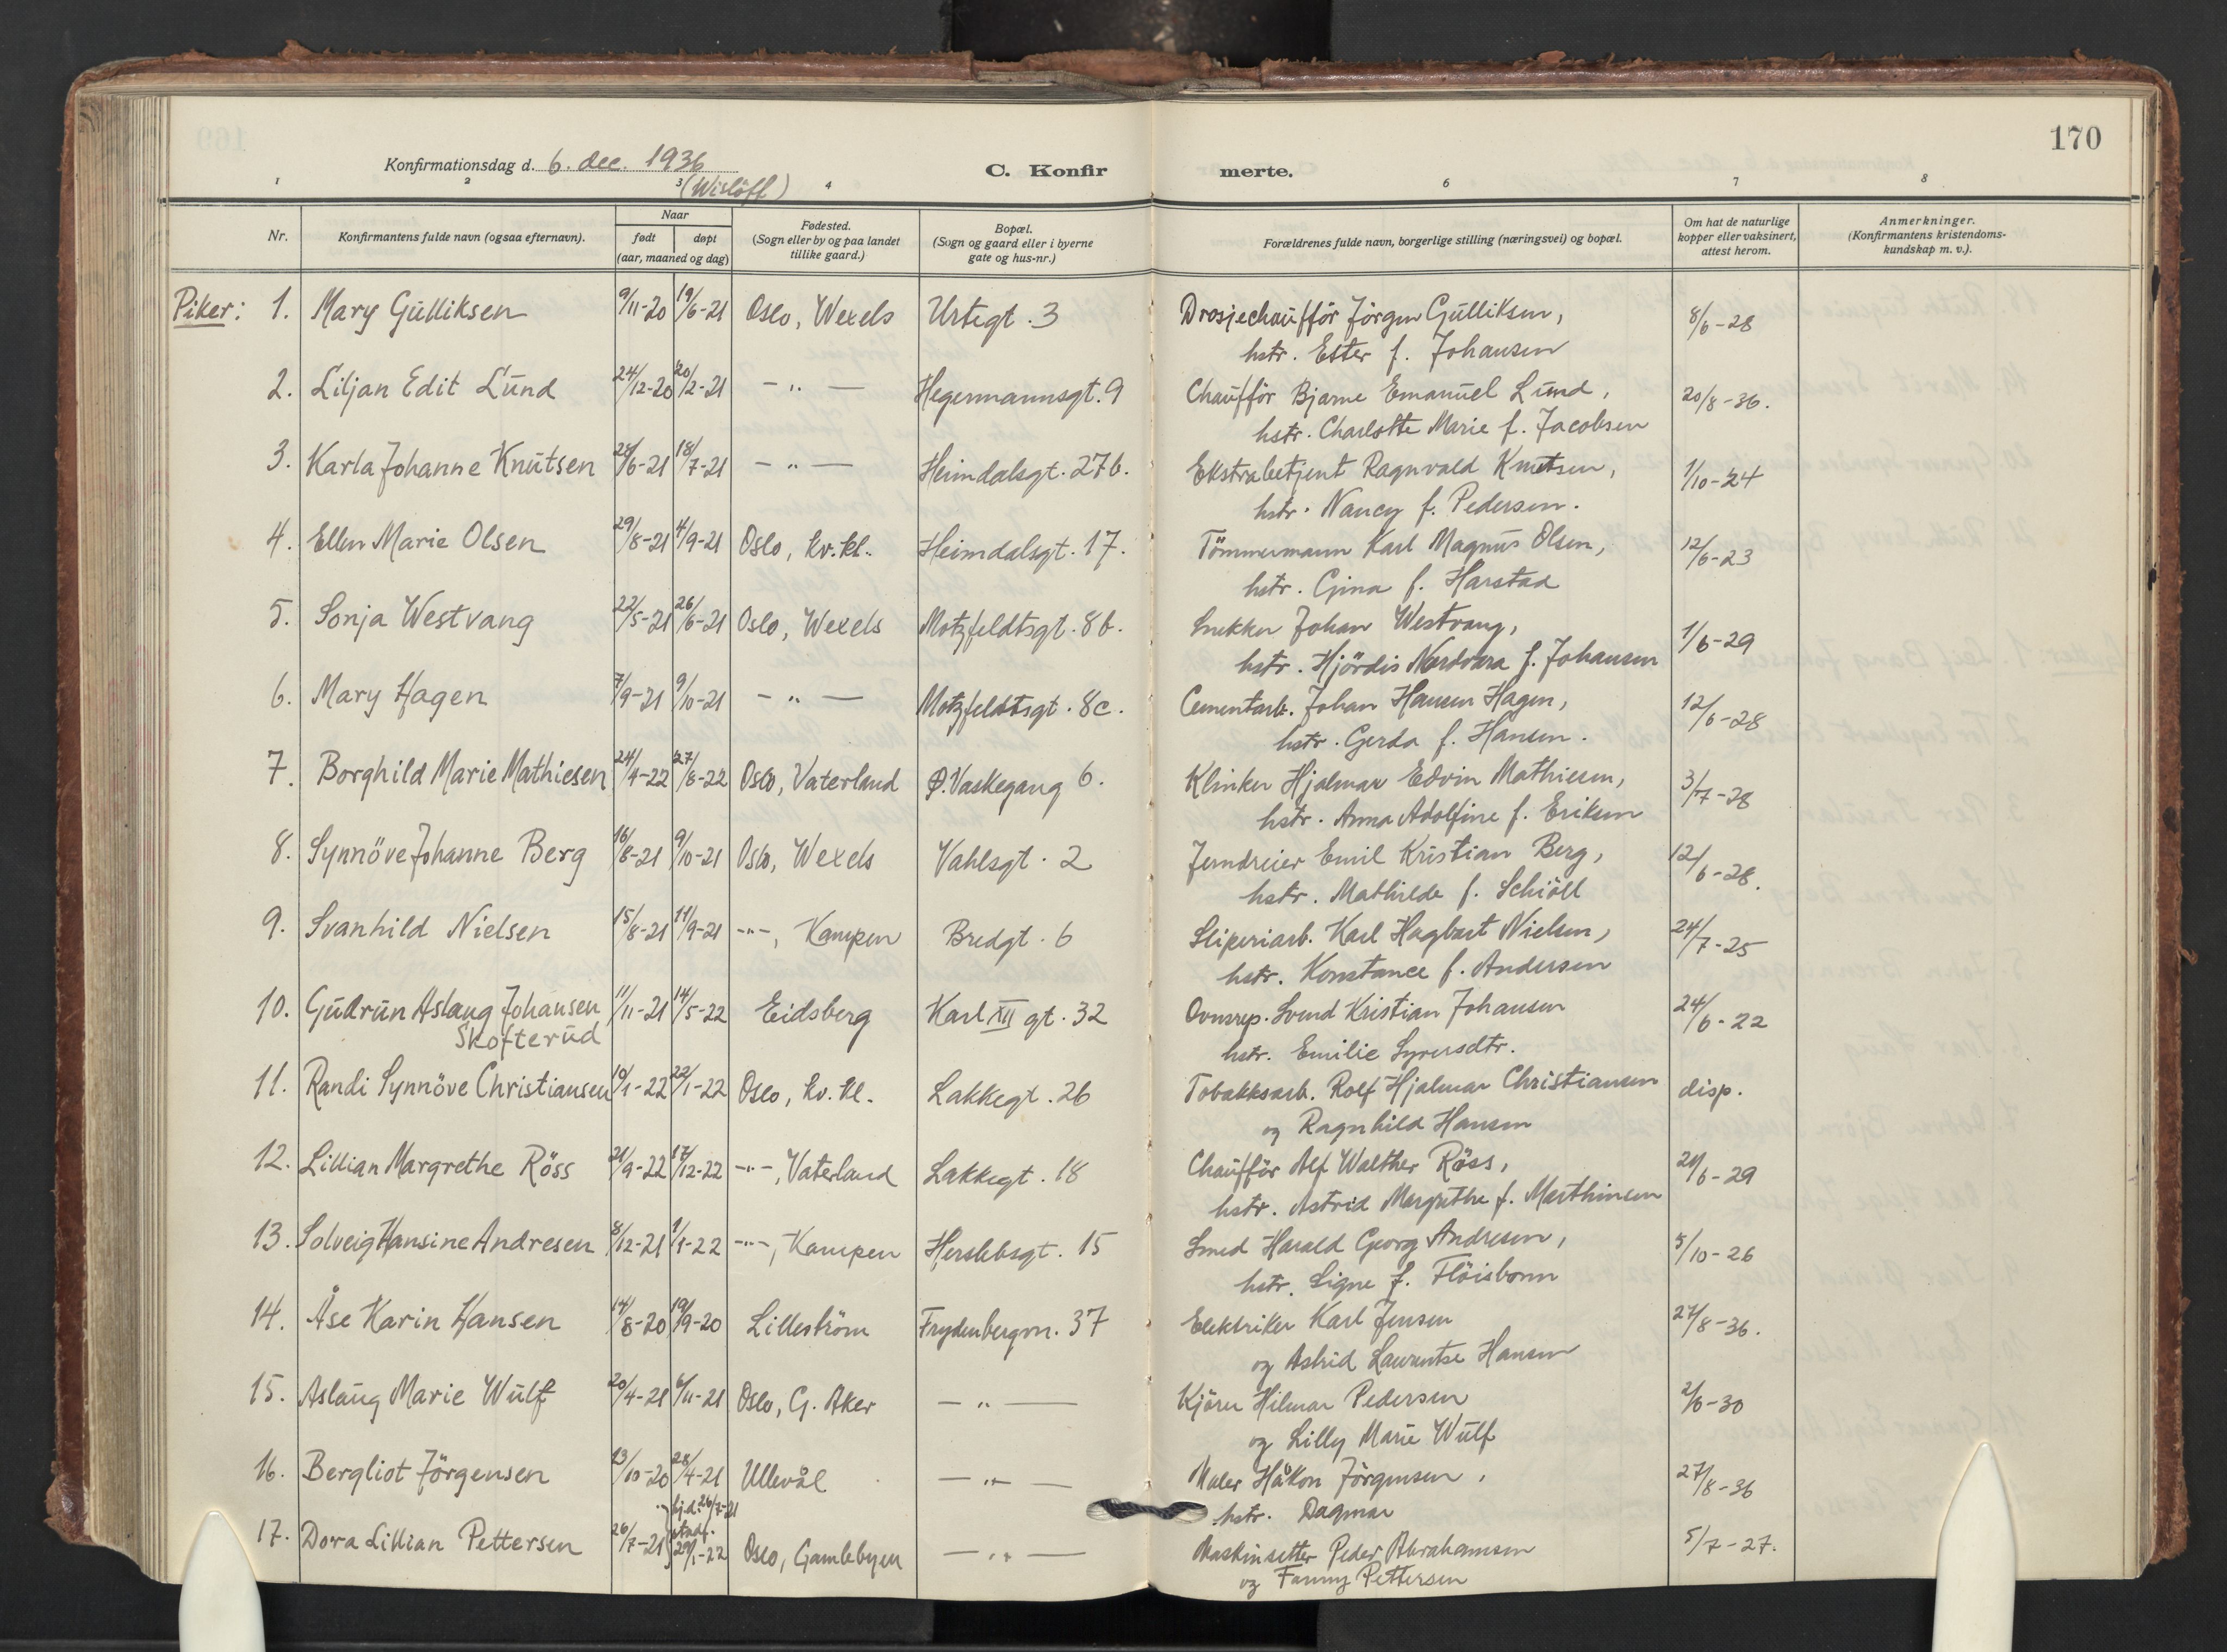 170
Konfirmationsdag d. 6. dec. 1936
(Wislöff)
C. Konfir merte.
1 2 3 4 6 7 8
Nr.
Konfirmantens fulde navn (ogsaa efternavn).
Naar
født døpt
(aar, maaned og dag)
Fødested.
(Sogn eller by og paa landet
tillike gaard.)
Bopæl.
(Sogn og gaard eller i byerne
gate og hus-nr.)
Forældrenes fulde navn, borgerlige stilling (næringsvei) og bopæl.
Om hat de naturlige
kopper eller vaksinert,
attest herom.
Anmerkninger.
(Konfirmantens kristendoms-
kundskap m. v.).
Piker: 1. Mary Gulliksen 9/11-20 19/6-21 Oslo, Wexels Urtegt. 3 Drosjechaufför Jörgen Gulliksen, 8/6-28
hstr. Ester f. Johansen
2. Liljan Edit Lund 24/12-20 20/2-21 — " — Hegermannsgt. 9 Chaufför Bjarne Emanuel Lund, 20/8-36.
hstr. Charlotte Marie f. Jacobsen
3. Karla Johanne Knutsen 28/6-21 18/7-21 — " — Heimdalsgt. 27b. Ekstrabetjent Ragnvald Knutsen, 1/10-24
hstr. Nancy f. Pedersen.
4. Ellen Marie Olsen 29/8-21 4/9-21 Oslo, kv.kl. Heimdalsgt. 17. Tömmermann Karl Magnus Olsen, 12/6-23
hstr. Gina f. Harstad
5. Sonja Westvang 22/5-21 26/6-21 Oslo, Wexels Motzfeldtsgt. 8b. Snekker Johan Westvang, 1/6-29
hstr. Hjördis Nordvara f. Johansen
6. Mary Hagen 7/9-21 9/10-21 — " — Motzfeldtsgt. 8c. Cementarb. Johan Hansen Hagen, 12/6-28
hstr. Gerda f. Hansen.
7. Borghild Marie Mathiesen 24/4-22 27/8-22 Oslo, Vaterland Ø. Vaskegang 6. Klinker Hjalmar Edvin Mathiesen, 3/7-28
hstr. Anna Adolfine f. Eriksen
8. Synnöve Johanne Berg 16/8-21 9/10-21 Oslo, Wexels Vahlsgt. 2 Jerndreier Emil Kristian Berg, 12/6-28.
hstr. Mathilde f. Schiöll
9. Svanhild Nielsen 15/8-21 11/9-21 -"-, Kampen Bredgt. 6 Sliperiarb. Karl Hagbart Nielsen, 24/7-25
hstr. Konstance f. Andersen
10. Gudrun Aslaug Johansen 11/11-21 14/5-22 Eidsberg Karl XII gt. 32 Ovnsrep. Svend Kristian Johansen 24/6-22
Skofterud hstr. Emilie Syversdtr.
11. Randi Synnöve Christiansen 10/1-22 22/1-22 Oslo, kv. kl. Lakkegt. 26 Tobakksarb. Rolf Hjalmar Christiansen disp.
og Ragnhild Hansen
12. Lillian Margrethe Röss 21/9-22 17/12-22 -"-, Vaterland Lakkegt. 18 Chaufför Alf Walther Röss, 21/6-29
hstr. Astrid Margrethe f. Marthinsen
13. Solveig Hansine Andresen 8/12-21 1/1-22 -"-, Kampen Herslebsgt. 15 Smed Harald Georg Andresen, 5/10-26
hstr. Signe f. Flöisbonn
14. Åse Karin Hansen 14/8-20 19/9-20 Lilleström Frydenbergvn. 37 Elektriker Karl Jensen 27/8-36.
og Astrid Laurentse Hansen
15. Aslaug Marie Wulf 20/4-21 6/11-21 Oslo, G. Aker — " — Kjörer Hilmar Pedersen 2/6-30
og Lilly Marie Wulf
16. Bergliot Jörgensen 23/10-20 28/4-21 Ullevål — " — Maler Håkon Jörgensen, 27/8-36
hstr. Dagmar
17. Dora Lillian Pettersen 26/7-21 hj.d. 26/7-21 stadf. 29/1-22 Oslo, Gamlebyen — " — Maskinsetter Peder Abrahamsen 5/7-27.
og Fanny Pettersen